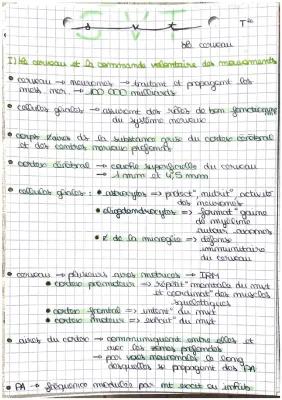 S V T Tle
le cerveau
I) le cerveau et la commande volontaire des mouvements
• cerveau → neurones → traitent et propagent les
mess nerv → 100 000 milliards
• cellules gliales → assurent des rôles de bon fonctionnement
du système nerveux
• corps dans la substance grise du cortex cérébral
et des centres nerveux profonds
• cortex cérébral → couche superficielle du cerveau
→ 1 mm et 4,5 mm
• cellules gliales : • astrocytes → protect°, nutrit°, activité
des neurones
• oligodendrocytes → format° gaine
de myéline
autour axones
• de la microglie → défense
immunitaire
du cerveau
• cerveau → plusieurs aires motrices → IRM
• cortex prémoteur → mentale du mvt
et coordinat° des muscles
squelettiques
• cortex frontal → du mvt
• cortex moteur → du mvt
• aires du cortex → communiquent entre elles et
avec les profondes
→ par voies neuronales le long
desquelles se propagent des PA
• PA → fréquence modulée par nt excit ou inhib